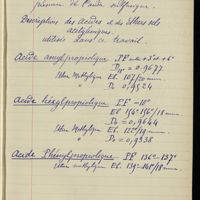 présence de l'acide sulfurique.
Description des Acides et des Ethers sels
acétyléniques
utilisés dans ce travail.
Acide amylpropiolique PF entre +5° et +6°
D = 0.9677
Ether Méthylique Eb. 107/20 mm
D₀ = 0,9524
Acide hexylpropiolique PF −10°
Eb 154°-156°/18 mm
D₀ = 0,9644
Ether Méthylique Eb. 122°/19 mm
D₀ = 0,9338
Acide Phénylpropiolique PF 136°-137°
Ether méthylique Eb. 139°-/18 mm